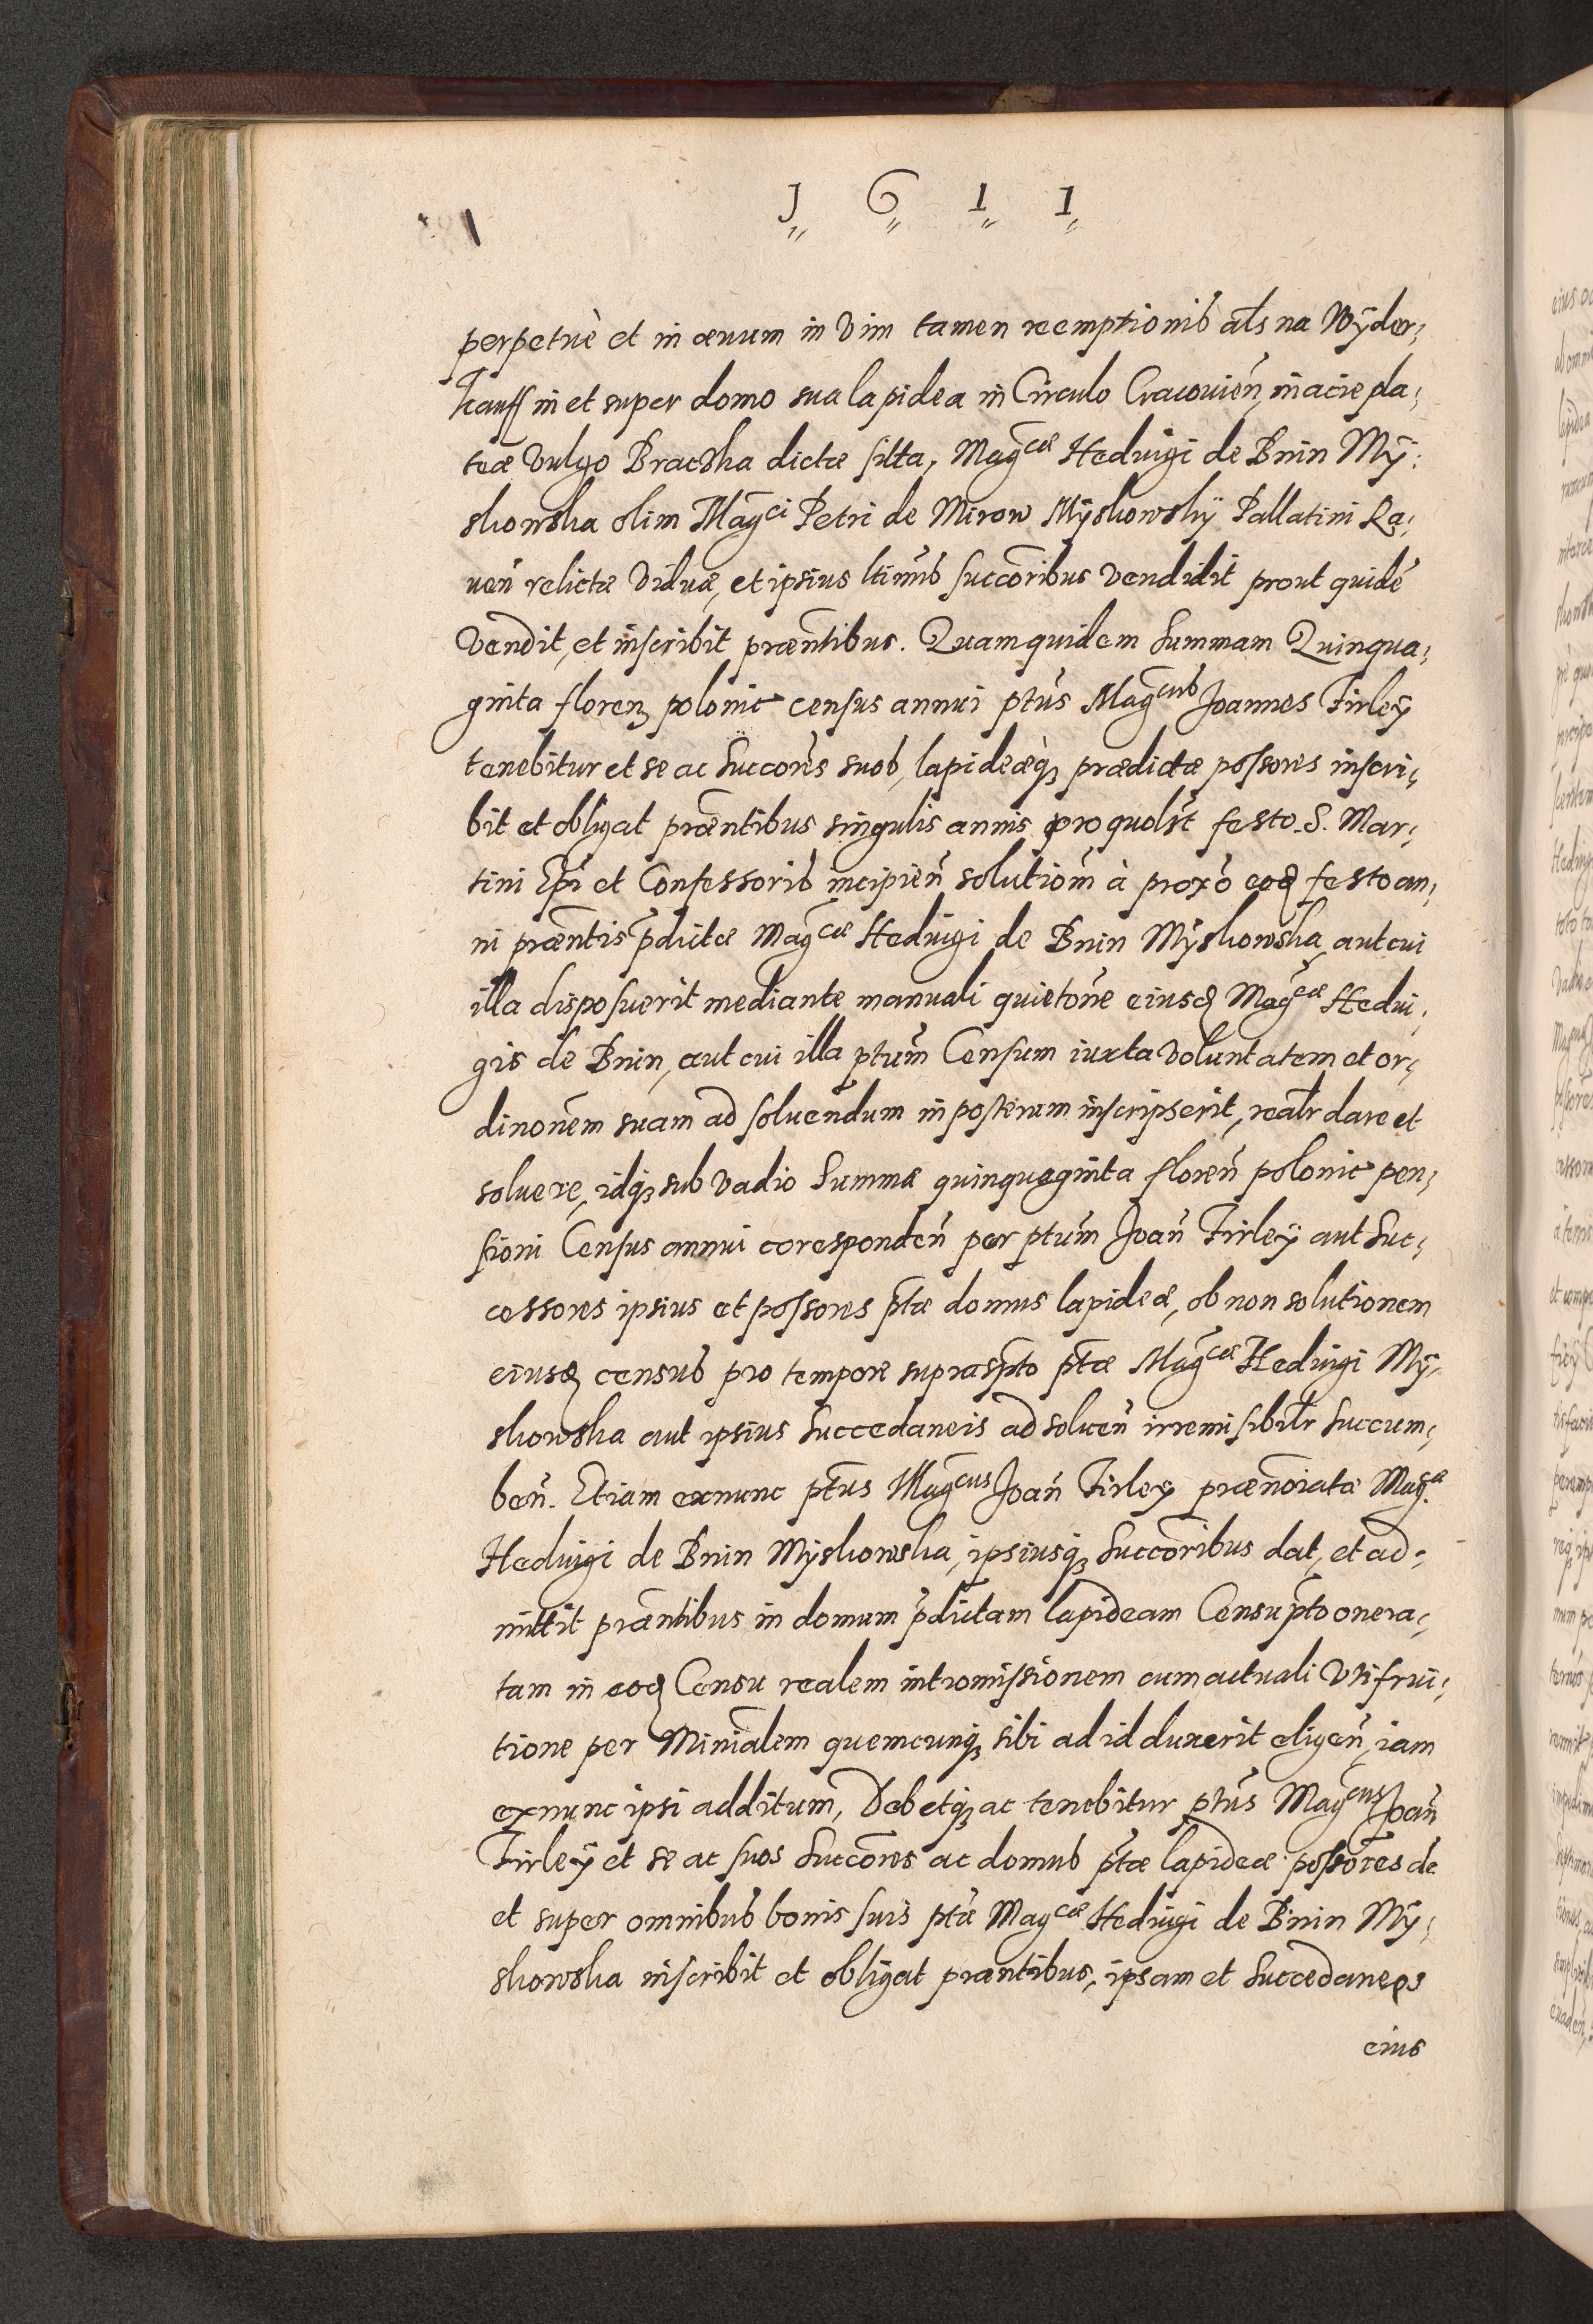 J 6 1 1
perpetuè et in ævum in Vim tamen reemptionis als na Wÿder,
kauff in et super domo sua lapidea in Circulo Cracouien̄, in acie pla,
teæ Vulgo Braczka dictæ sitta, Mag̃cæ Heduigi de Bnin Mÿ,
skowska olim Mag̃ci Petri de Mirow Mÿskowskÿ Pallatini Ra,
uen̄ relictæ Viduæ, et ipsius ltimis succoribus vendidit prout quidē
Vendit, et inscribit præntibus. Quamquidem Summam Quinqua,
ginta floren polonic census annui ptūs Mag̃cus Joannes Firleÿ
tenebitur et se ac Succores suos, lapideæq̨ prædictæ possores inscri,
bit et obligat præntibus singulis annis pro quolt festo S. Mar,
tini Ep̄i et Confessoris incipien̄ solutiōm à proxō eod festo an,
ni præntis p̄dictæ Mag̃cæ Heduigi de Bnin Mÿskowska, aut cui
illa disposuerit mediante manuali quietōne eiusd Mag̃cæ Hedui,
gis de Bnin, aut cui illa ptūm Censum iuxta Voluntatem et or,
dinōnem suam ad soluendum in posterum inscripserit, realr dare et
soluere, idq̨ sub vadio Summæ quinquaginta floren̄ polonic pen,
sioni Census annui coresponden̄ per ptūm Joan̄ Firleÿ aut Suc,
cessores ipsius et possores ptæ domus lapideæ, ob non solutionem
eiusd census pro tempore supraspto ptæ Mag̃cæ Heduigi Mÿ,
skowska aut ipsius Succedaneis ad soluen̄ irremisibilr Succum,
ben̄. Etiam exnunc ptūs Mag̃cus Joan̄ Firley prænoiatæ Mag̃æ
Heduigi de Bnin Mÿskowska, ipsiusq̨ Succoribus dat, et ad,
mittit præntibus in domum p̄dictam lapideam Censu pto onera,
tam in eod Censu realem intromissionem cum actuali Vtifrui,
tione per Minialem quemcunq̨ sibi ad id duxerit eligen̄, iam
exnunc ipsi additum, Debetq̨ ac tenebitur ptūs Mag̃cus Joan̄
Firleÿ et se ac suos Succores ac domus ptæ lapideæ possores de
et super omnibus bonis suis ptæ Mag̃cæ Heduigi de Bnin Mÿ,
skowska inscribit et obligat præntibus, ipsam et Succedaneos
eius